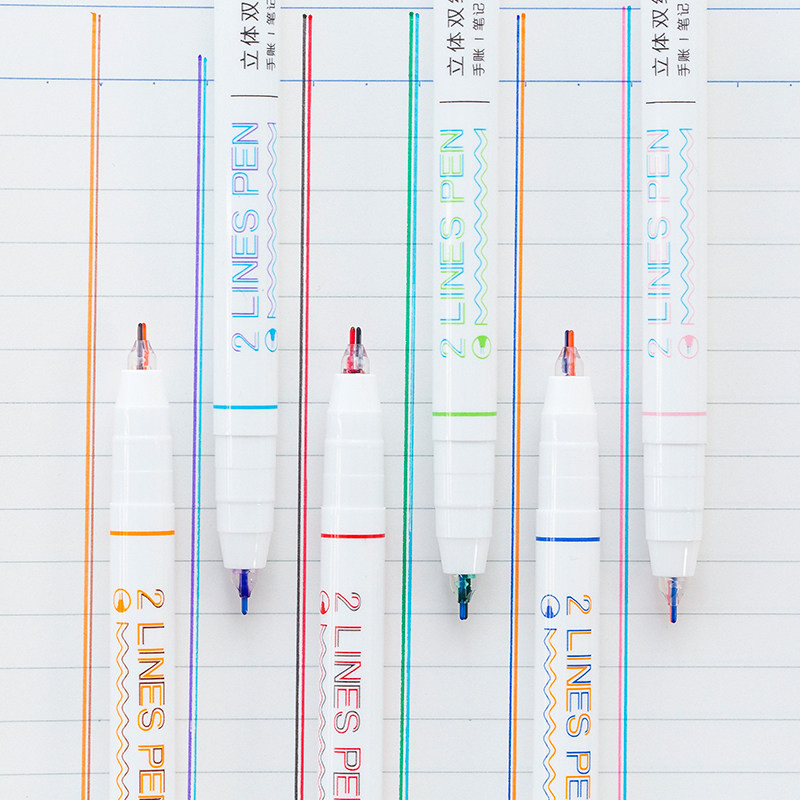 立体双
手账 | 笔记
2 LINES PEN
立体双
手账 | 笔记
2 LINES PEN
立体双
手账 | 笔记
2 LINES PEN
2 LINES PEN
2 LINES PEN
2 LINES PEN